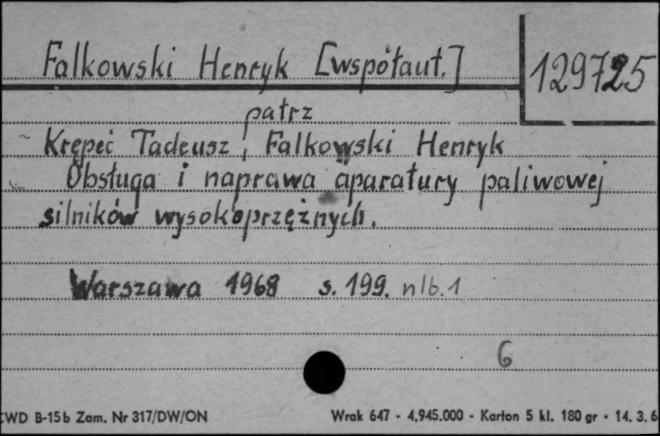 Falkowski Henryk [współaut.]
129725
patrz
Krępeć Tadeusz, Falkowski Henryk
Obsługa i naprawa aparatury paliwowej
silników wysokoprzężnych.
Warszawa 1968 s. 199. nlb. 1
6
CWD B-15b Zam. Nr 317/DW/ON
Wrak 647 - 4.945.000 - Karton 5 kl. 180 gr - 14. 3. 6